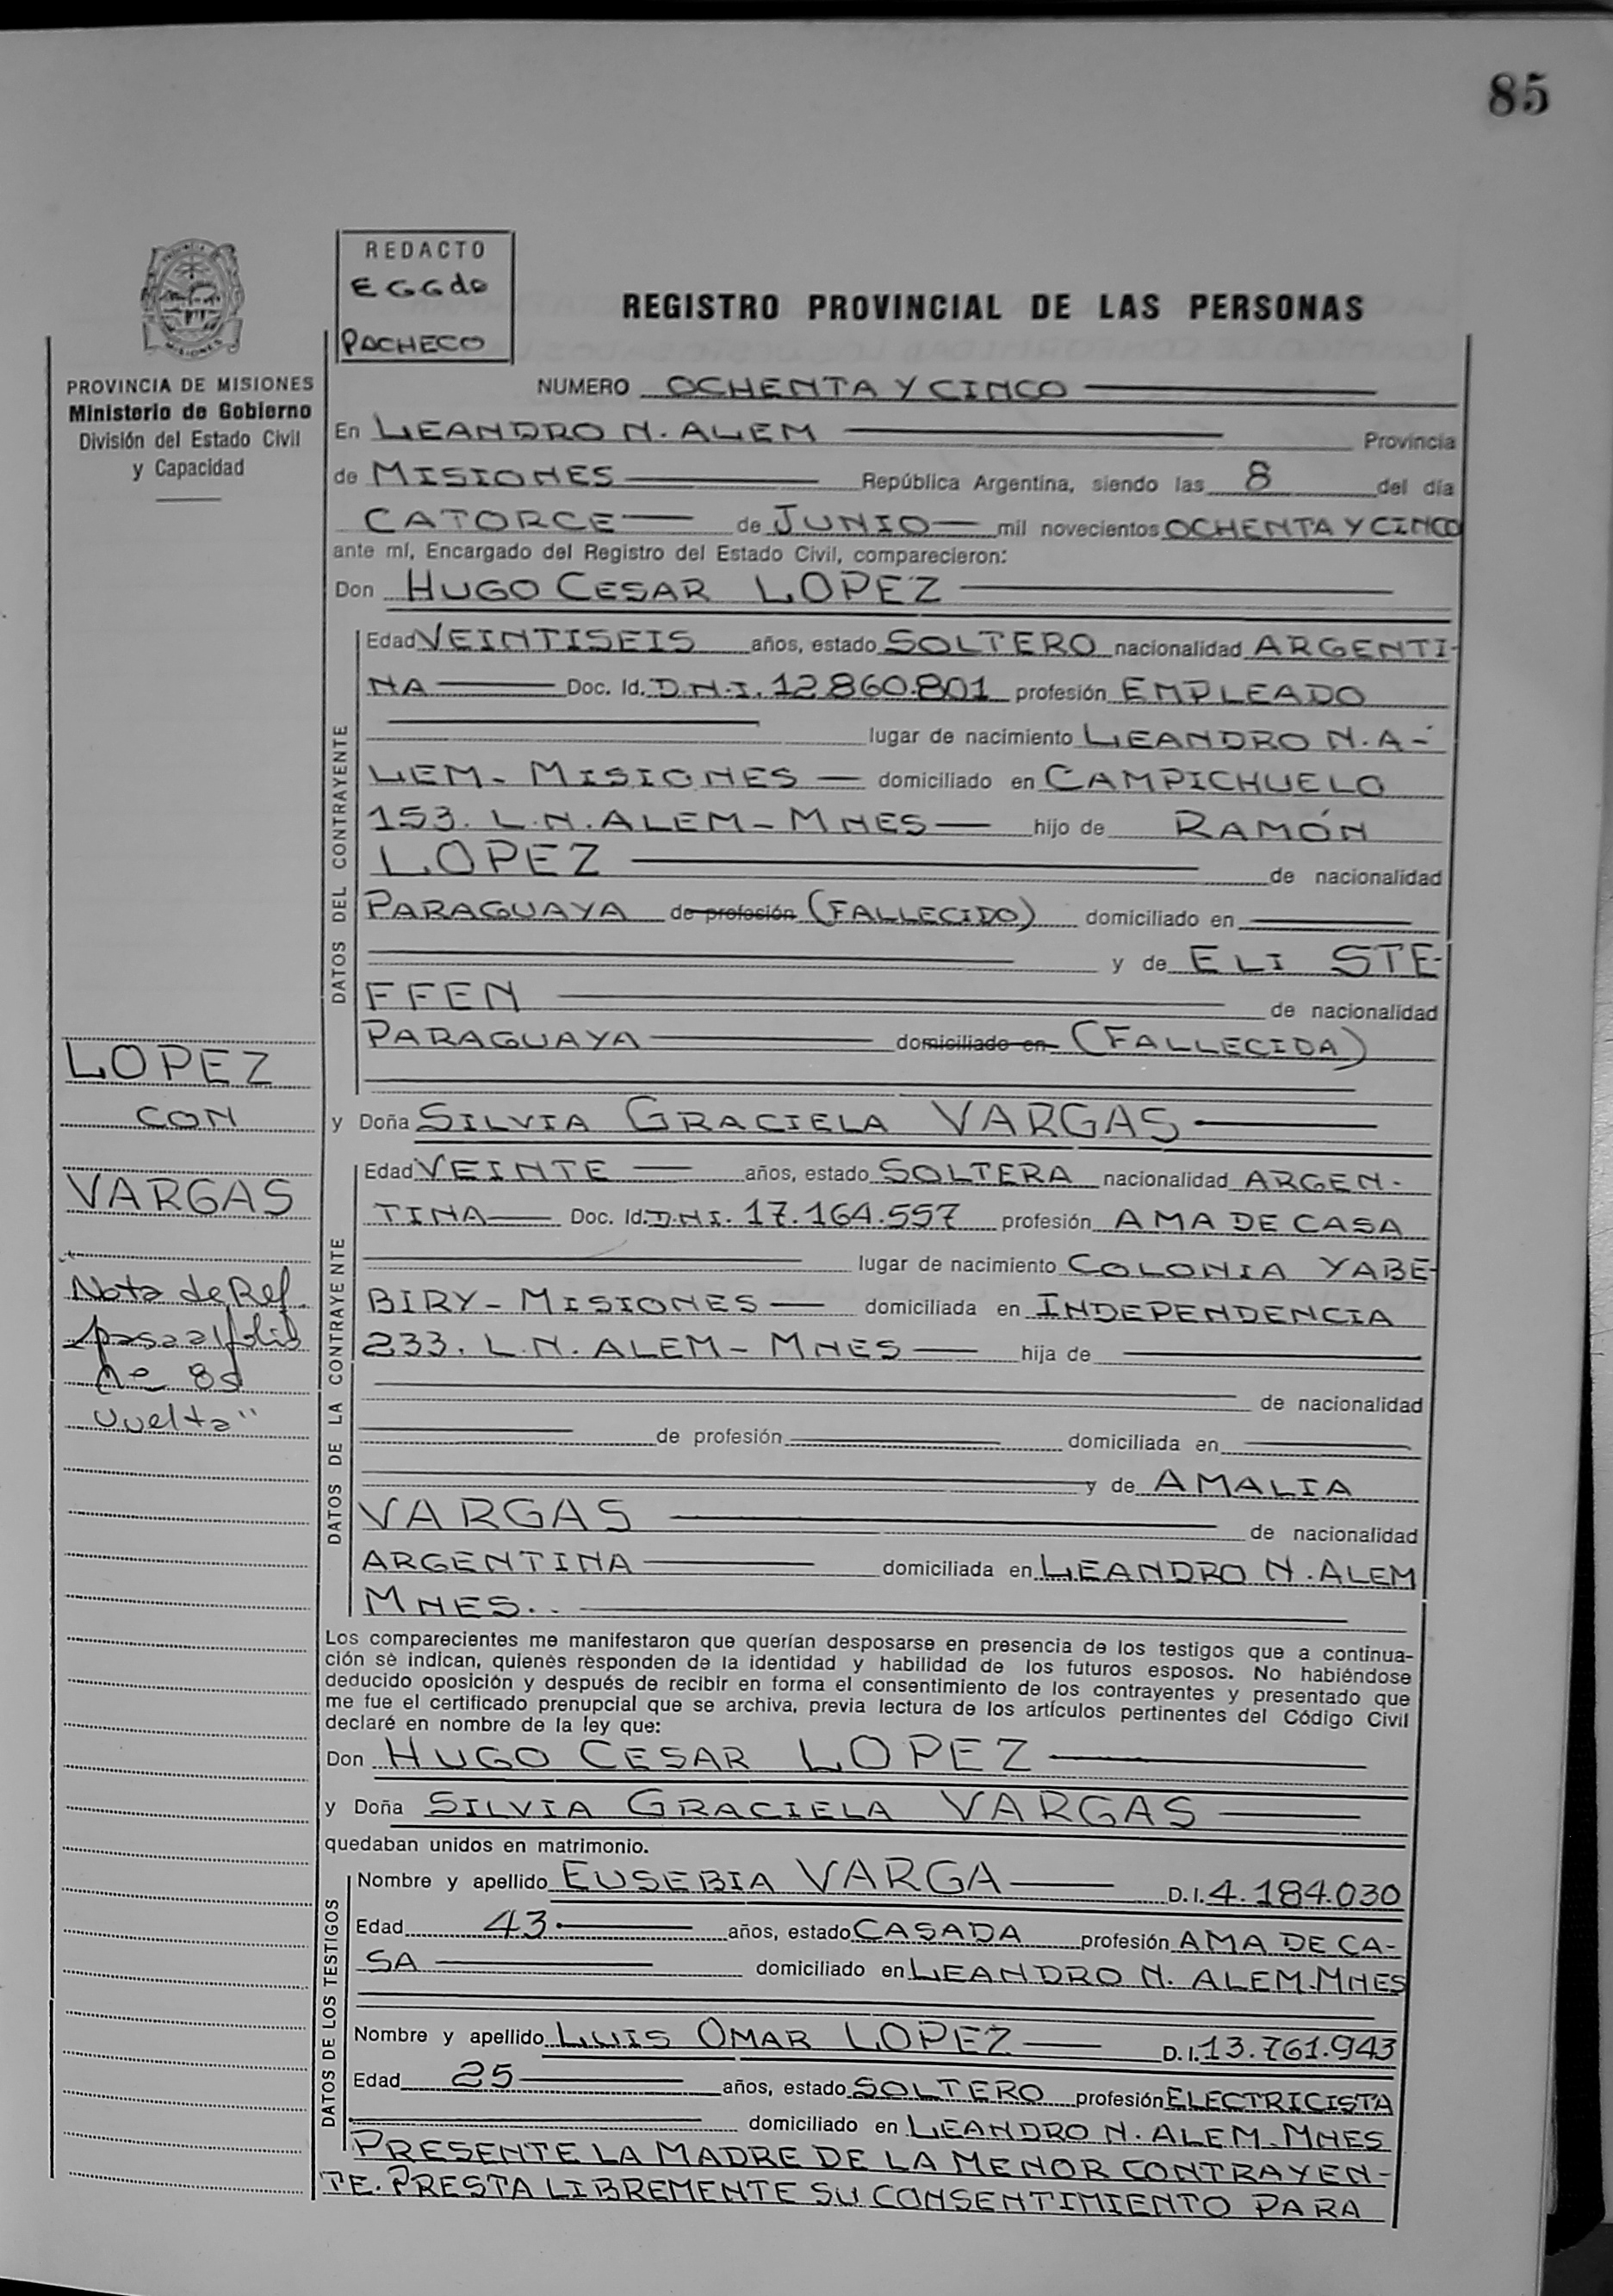 85
REDACTO
EGGdo
PACHECO
REGISTRO PROVINCIAL DE LAS PERSONAS
MISIONES
PROVINCIA DE MISIONES
Ministerio de Gobierno
División del Estado Civil
y Capacidad
NUMERO OCHENTA Y CINCO
En LEANDRO N. ALEM Provincia
de MISIONES República Argentina, siendo las 8 del día
CATORCE de JUNIO mil novecientos OCHENTA Y CINCO
ante mí, Encargado del Registro del Estado Civil, comparecieron:
Don HUGO CESAR LOPEZ
DATOS DEL CONTRAYENTE
Edad VEINTISEIS años, estado SOLTERO nacionalidad ARGENTI-
NA Doc. Id. D.N.I. 12.860.801 profesión EMPLEADO
lugar de nacimiento LEANDRO N. A-
LEM - MISIONES domiciliado en CAMPICHUELO
153. L.N. ALEM - MNES hijo de RAMÓN
LOPEZ de nacionalidad
PARAGUAYA de profesión (FALLECIDO) domiciliado en
y de ELI STE-
FFEN de nacionalidad
PARAGUAYA domiciliado en (FALLECIDA)
LOPEZ
CON
VARGAS
Nota de Ref.
pasa al folio
85
vuelta"
y Doña SILVIA GRACIELA VARGAS
DATOS DE LA CONTRAYENTE
Edad VEINTE años, estado SOLTERA nacionalidad ARGEN-
TINA Doc. Id. D.N.I. 17.164.557 profesión AMA DE CASA
lugar de nacimiento COLONIA YABE-
BIRY - MISIONES domiciliada en INDEPENDENCIA
233. L.N. ALEM - MNES hija de
de nacionalidad
de profesión domiciliada en
y de AMALIA
VARGAS de nacionalidad
ARGENTINA domiciliada en LEANDRO N. ALEM
MNES..
Los comparecientes me manifestaron que querían desposarse en presencia de los testigos que a continua-
ción se indican, quienes responden de la identidad y habilidad de los futuros esposos. No habiéndose
deducido oposición y después de recibir en forma el consentimiento de los contrayentes y presentado que
me fue el certificado prenupcial que se archiva, previa lectura de los artículos pertinentes del Código Civil
declaré en nombre de la ley que:
Don HUGO CESAR LOPEZ
y Doña SILVIA GRACIELA VARGAS
quedaban unidos en matrimonio.
DATOS DE LOS TESTIGOS
Nombre y apellido EUSEBIA VARGA D.I. 4.184.030
Edad 43 años, estado CASADA profesión AMA DE CA-
SA domiciliado en LEANDRO N. ALEM - MNES
Nombre y apellido LUIS OMAR LOPEZ D.I. 13.761.943
Edad 25 años, estado SOLTERO profesión ELECTRICISTA
domiciliado en LEANDRO N. ALEM - MNES
PRESENTE LA MADRE DE LA MENOR CONTRAYEN-
TE. PRESTA LIBREMENTE SU CONSENTIMIENTO PARA